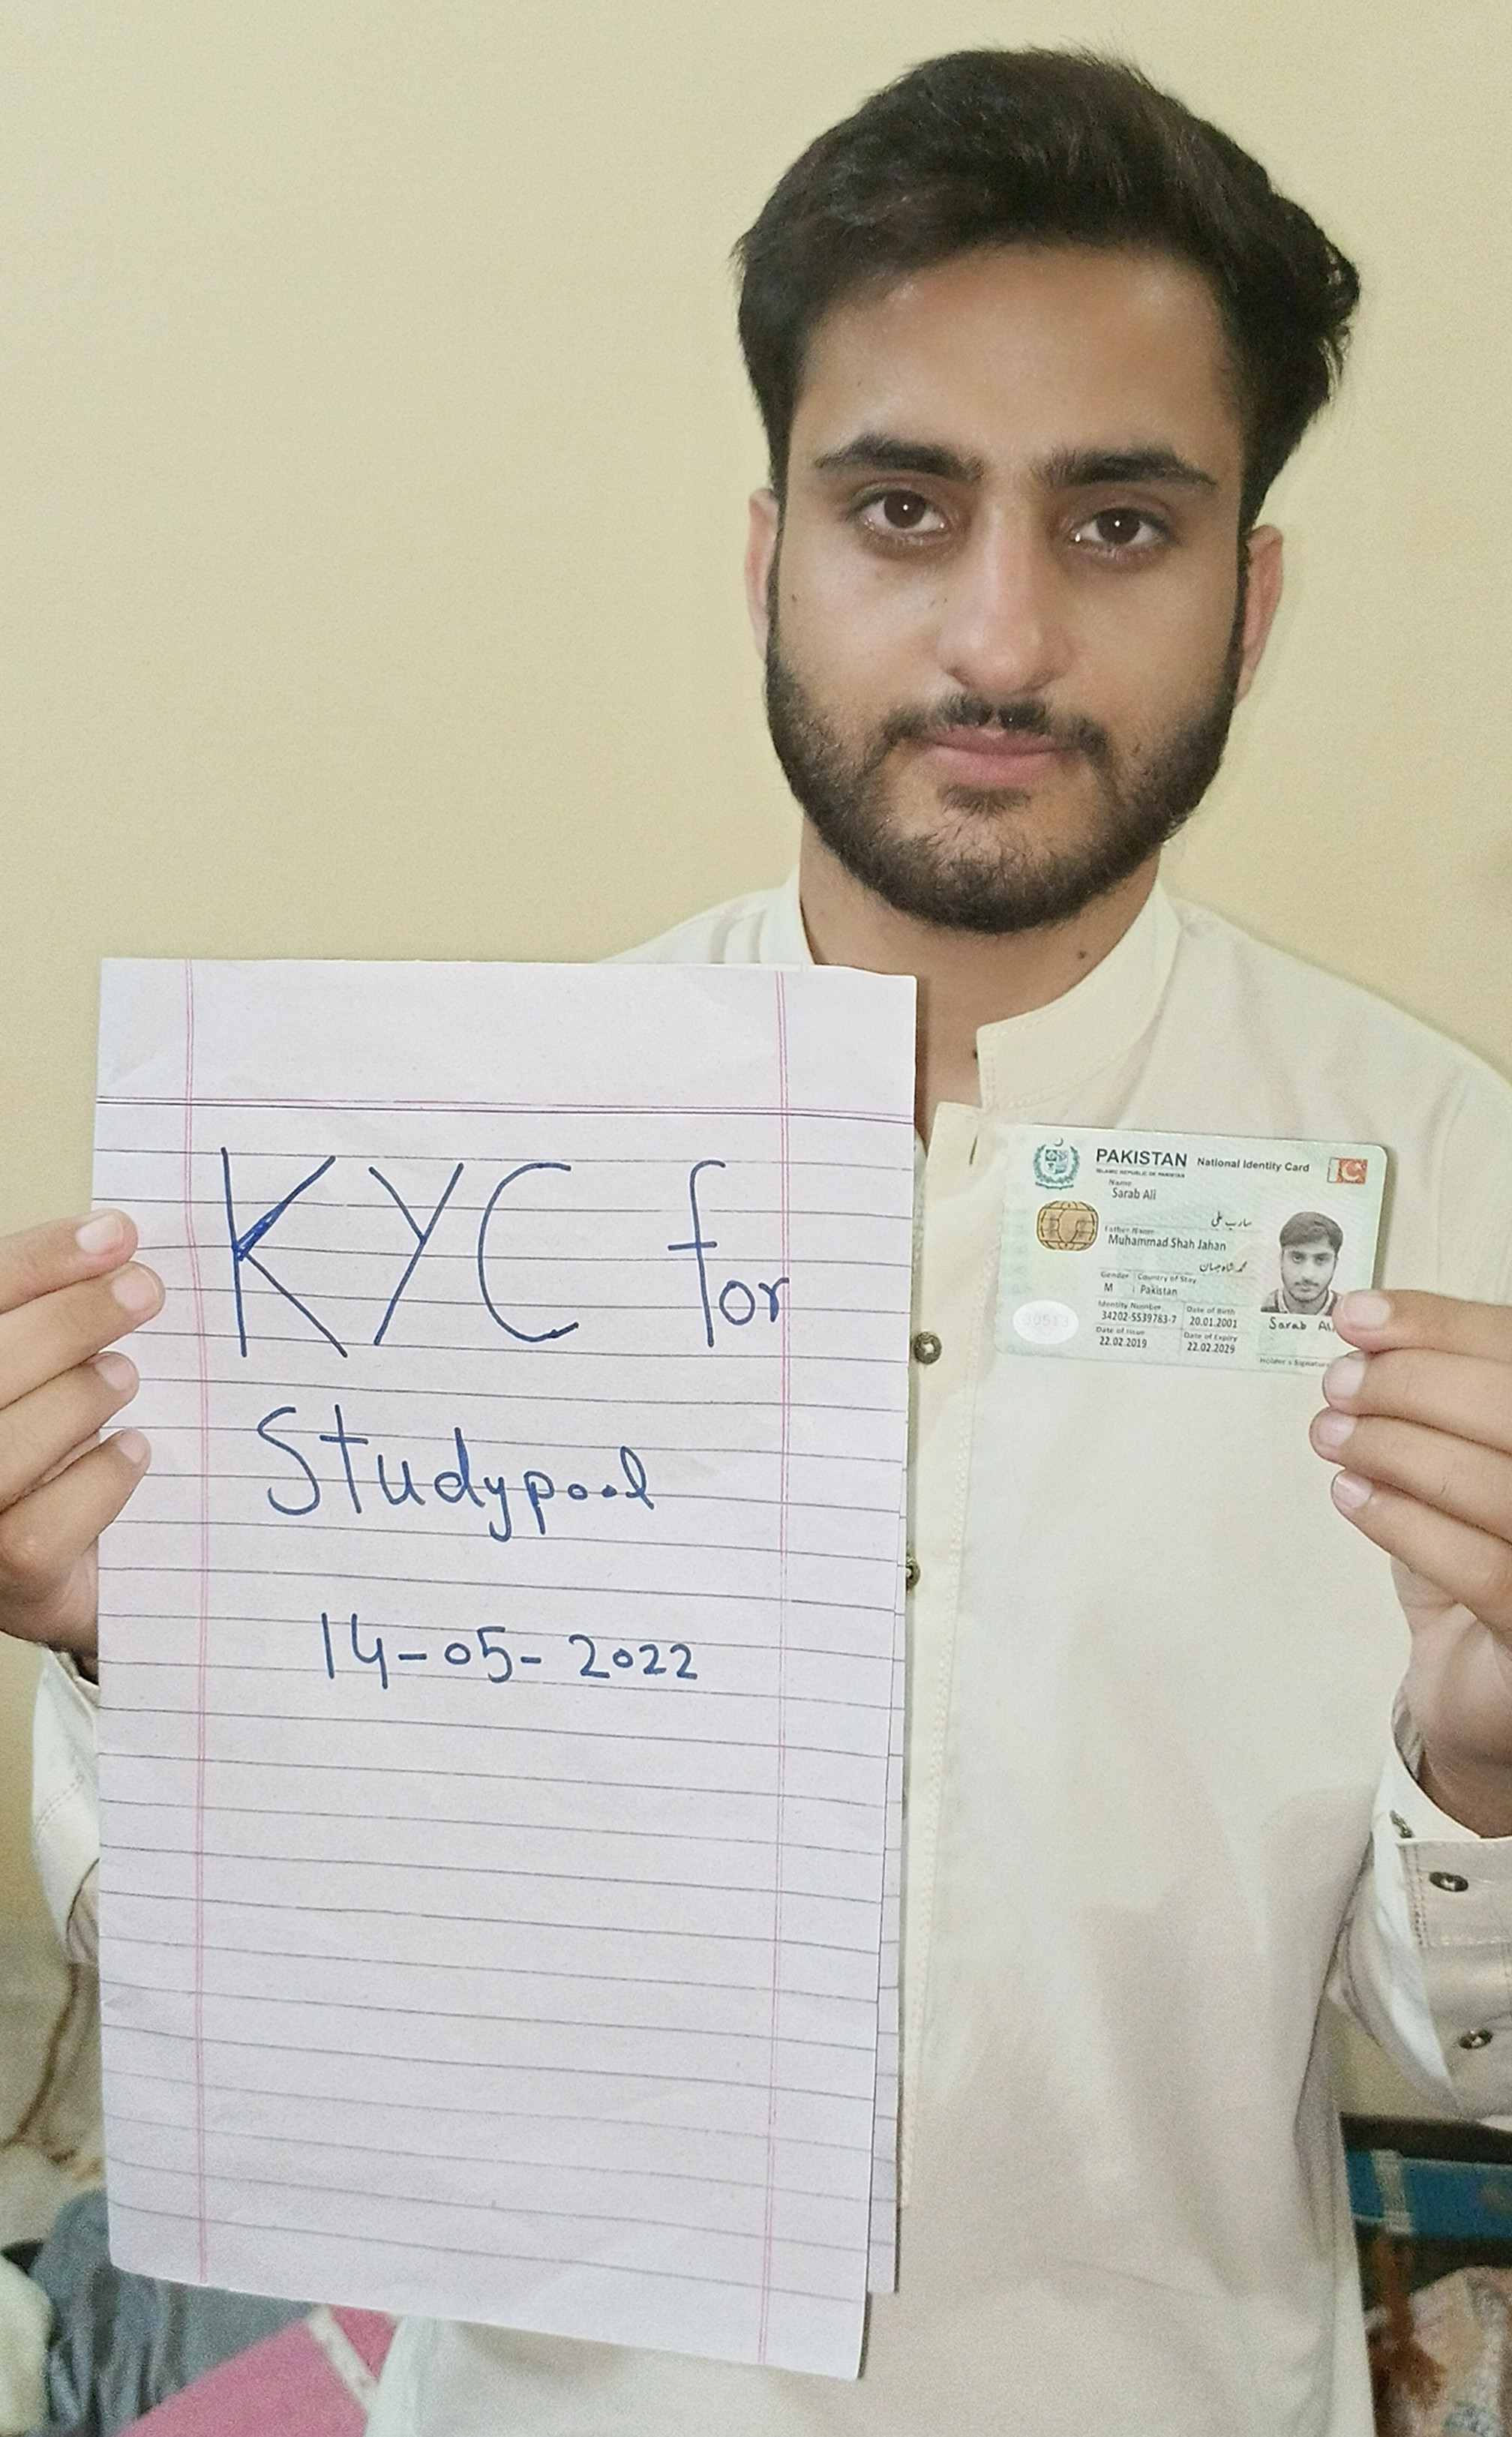 KYC for
Studypool
14-05-2022
PAKISTAN National Identity Card
ISLAMIC REPUBLIC OF PAKISTAN
Name
Sarab Ali
سارب علی
Father Name
Muhammad Shah Jahan
محمد شاہ جہان
Gender Country of Stay
M Pakistan
Identity Number Date of Birth
34202-5539783-7 20.01.2001
Date of Issue Date of Expiry
22.02.2019 22.02.2029
Sarab Ali
Holder's Signature